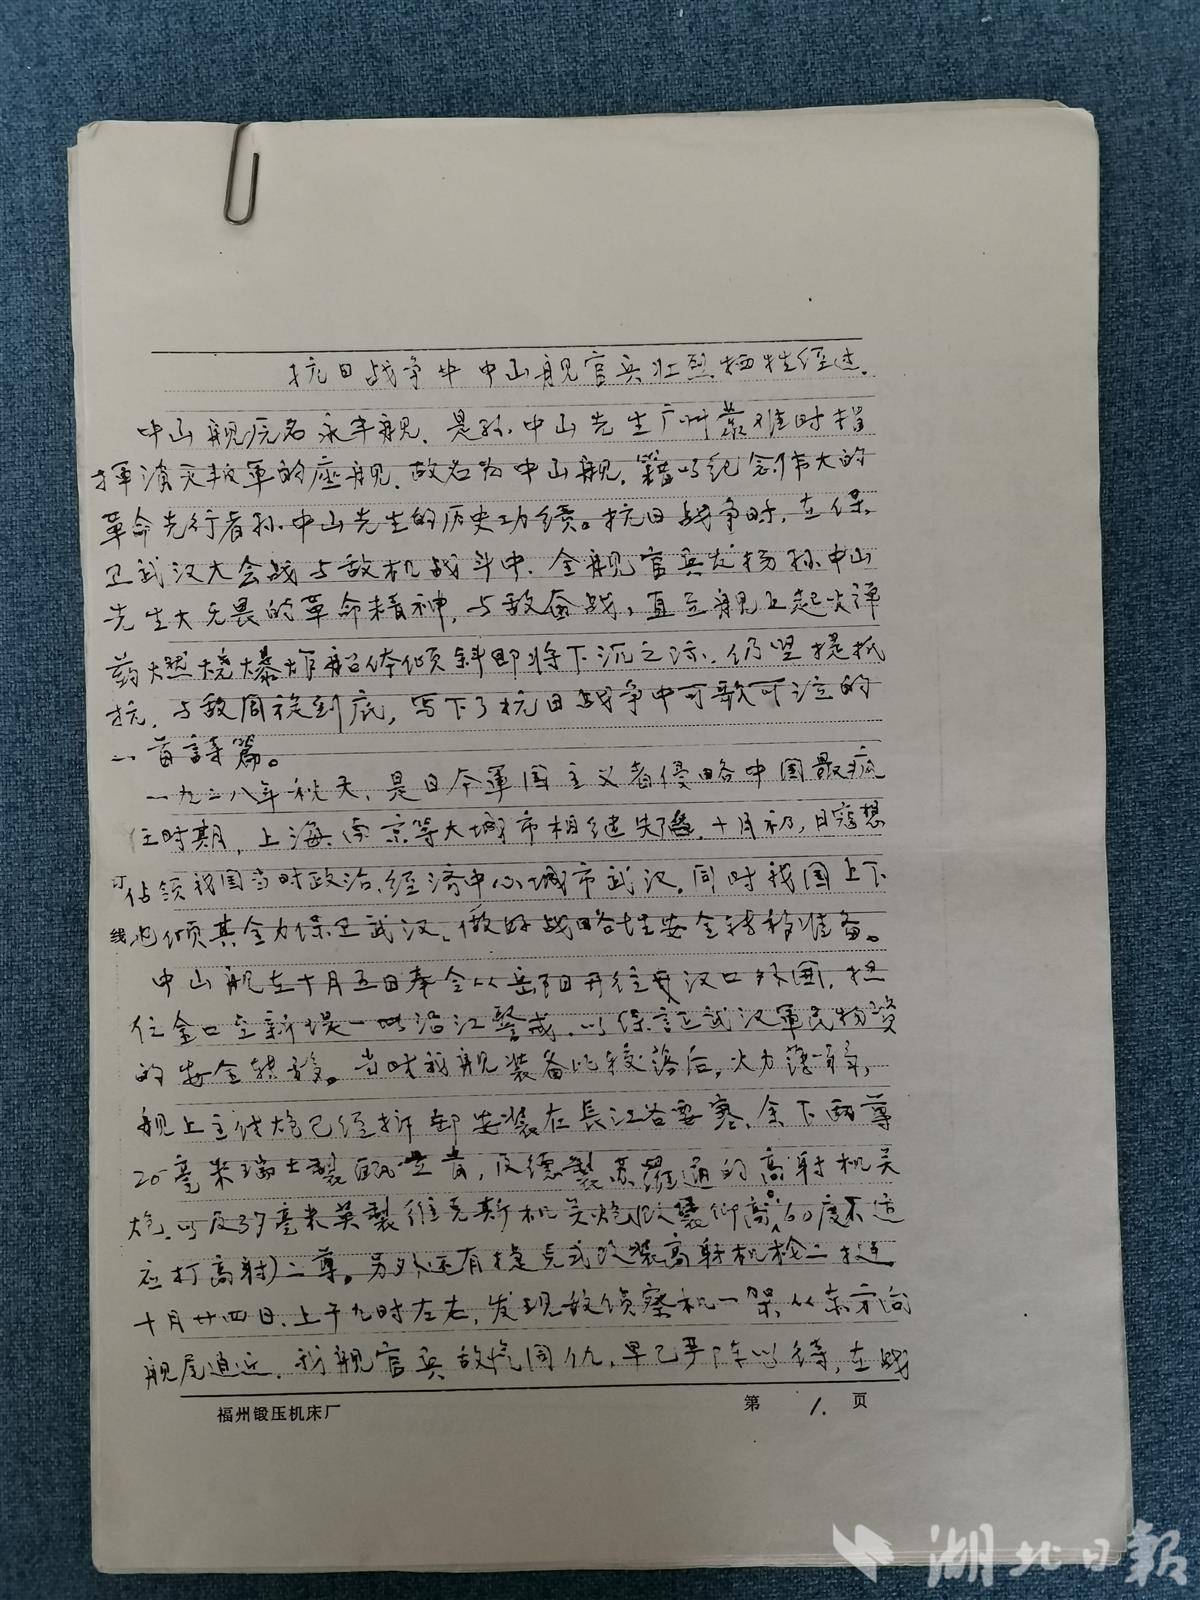 抗日战争中中山舰官兵壮烈牺牲经过.
中山舰原名永丰舰.是孙中山先生广州蒙难时指
挥消灭叛军的座舰.故名为中山舰.籍以纪念伟大的
革命先行者孙中山先生的历史功绩。抗日战争时.在保
卫武汉大会战与敌机战斗中.全舰官兵发扬孙中山
先生大无畏的革命精神,与敌奋战,直至舰上起火弹
药燃烧爆炸船体倾斜即将下沉之际.仍坚持抵
抗.与敌周旋到底,写下了抗日战争中可歌可泣的
一首诗篇。
一九三八年秋天,是日本軍国主义者侵略中国最疯
狂时期,上海、南京等大城市相继失陷.十月初,日寇想
占领我国当时政治.经济中心城市武汉.同时我国上下
也倾其全力保卫武汉、做好战略性安全转移准备。
中山舰在十月五日奉令从岳阳开往武汉口外围,担
任金口至新堤一带沿江警戒.以保証武汉軍民物资
的安全转移。当时我舰装备比较落后,火力薄弱,
舰上主付炮已经拆卸安装在長江各要塞,余下两尊
20毫米瑞士製,及德製苏羅通的高射机关
炮.以及37毫米英製维克斯机关炮(改裝仰高60度不适
应打高射)二尊。另外还有捷克式改装高射机枪二挺
十月廿四日.上午九时左右,发现敌侦察机一架从东方向
舰尾迫近.我舰官兵敌忾同仇,早已严阵以待,在战
订
线
福州锻压机床厂
第 1. 页
湖北日報